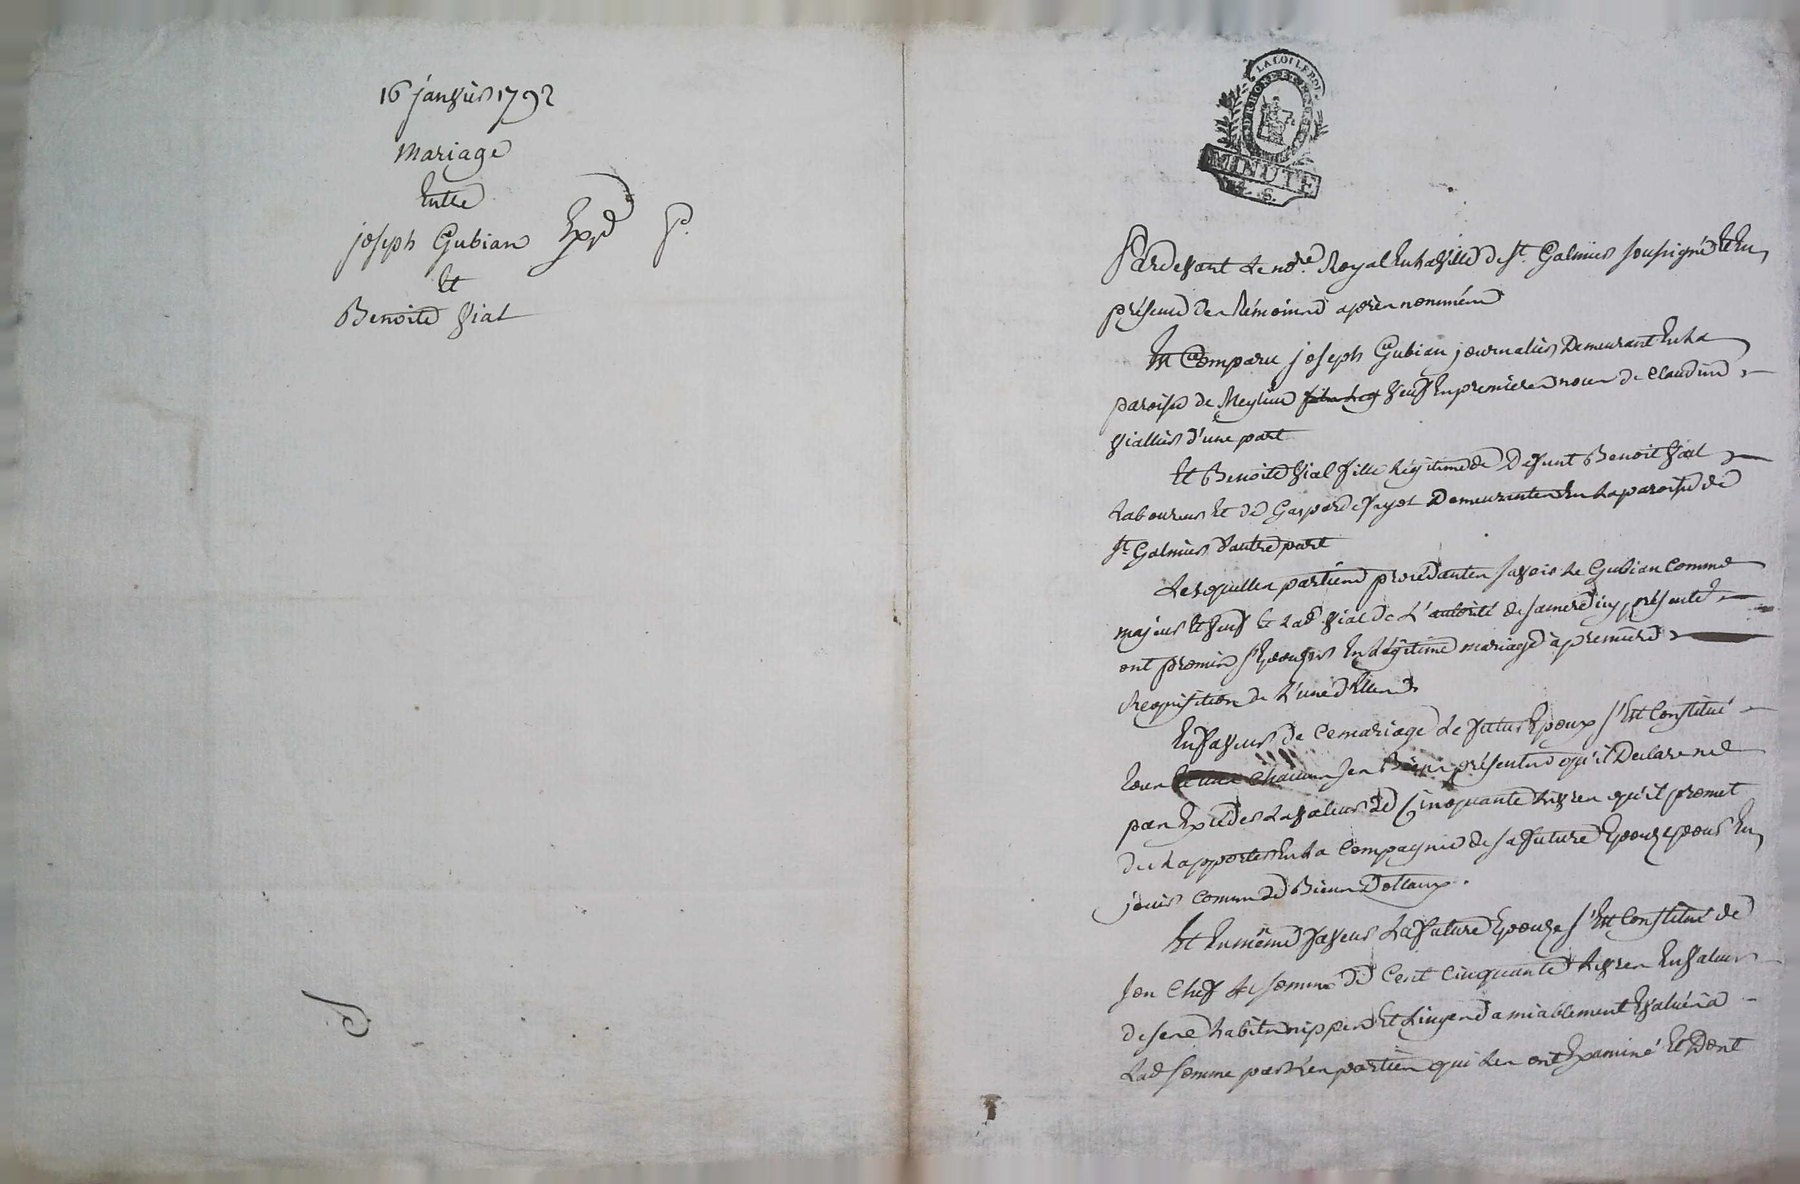 16 janvier 1792
Mariage
Entre
joseph Gubian Expd
Et
Benoite Vial
LA LOI LE ROI
MINUTE
4. S.
Pardevant Le nore. Royal En la ville de St. Galmier soussigné Et En
présence des témoins après nommés
Est Comparu joseph Gubian journalier Demeurant En la
paroisse de Meylieu veuf En premieres noces de Claudine
Viallier d'une part
Et Benoite Vial fille Légitime de Defunt Benoit Vial
Laboureur Et de Gasparde Demeurantes En la paroisse de
St Galmier d'autre part
Lesquelles parties procédantes savoir Le Gubian comme
majeur Et veuf Et Lad Vial de L'autorité de sa mere icy présente
ont promis s'Epouser En Légitime mariage à premiere
Requisition de L'une d'Elles
En faveur de Ce mariage Le futur Epoux s'Est Constitué
tous Chacuns ses Biens présents qu'il Declare ne
pas Exceder La valeur de Cinquante Livres qu'il promet
de Rapporter En La Compagnie de sa future Epouze pour En
jouir comme de Biens Dottaux.
Et En même faveur La future Epouze s'Est Constitué de
son Chef La somme de Cent cinquante Livres En valeur
de ses habits nippes Et Linges amiablement Evalués à
Lad somme par Les parties qui Les ont Examiné Et Dont